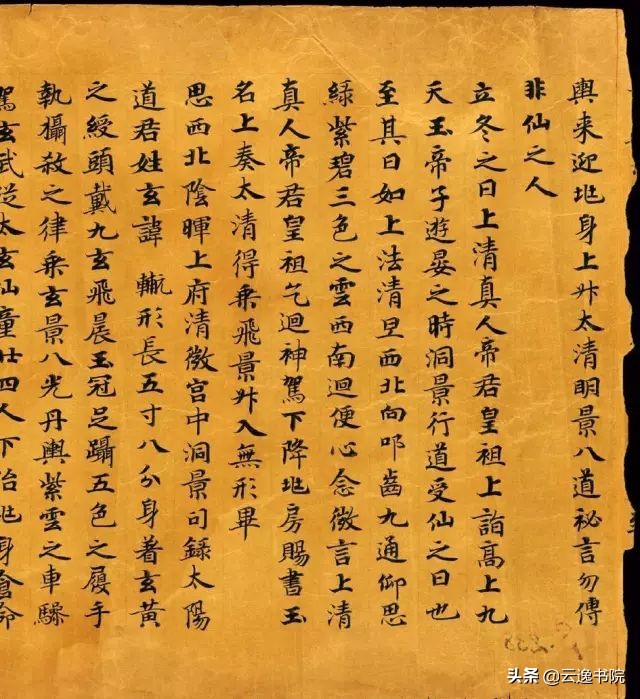 輿来迎兆身上升太清明景八道祕言勿傳
非仙之人
立冬之日上清真人帝君皇祖上詣高上九
天玉帝子遊晏之時洞景行道受仙之日也
至其日如上法清旦西北向叩齒九通仰思
緑紫碧三色之雲西南迴便心念微言上清
真人帝君皇祖乞迴神駕下降兆房賜書玉
名上奏太清得乘飛景升入無形畢
思西北陰暉上府清微宮中洞景司録太陽
道君姓玄諱 形長五寸八分身著玄黄
之綬頭戴九玄飛晨玉冠足躡五色之履手
執攝殺之律乘玄景八光丹輿紫雲之車驂
駕玄武從太玄仙童廿四人下治兆身
头条 @云逸书院